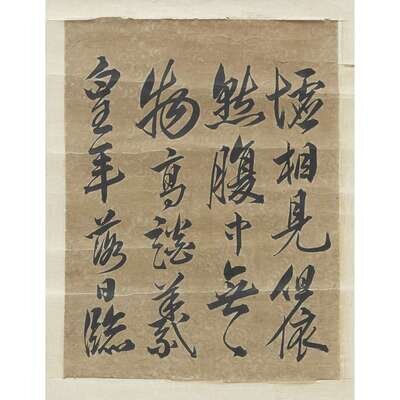 墟相見但依
然腹中無一
物高談羲
皇年落日臨